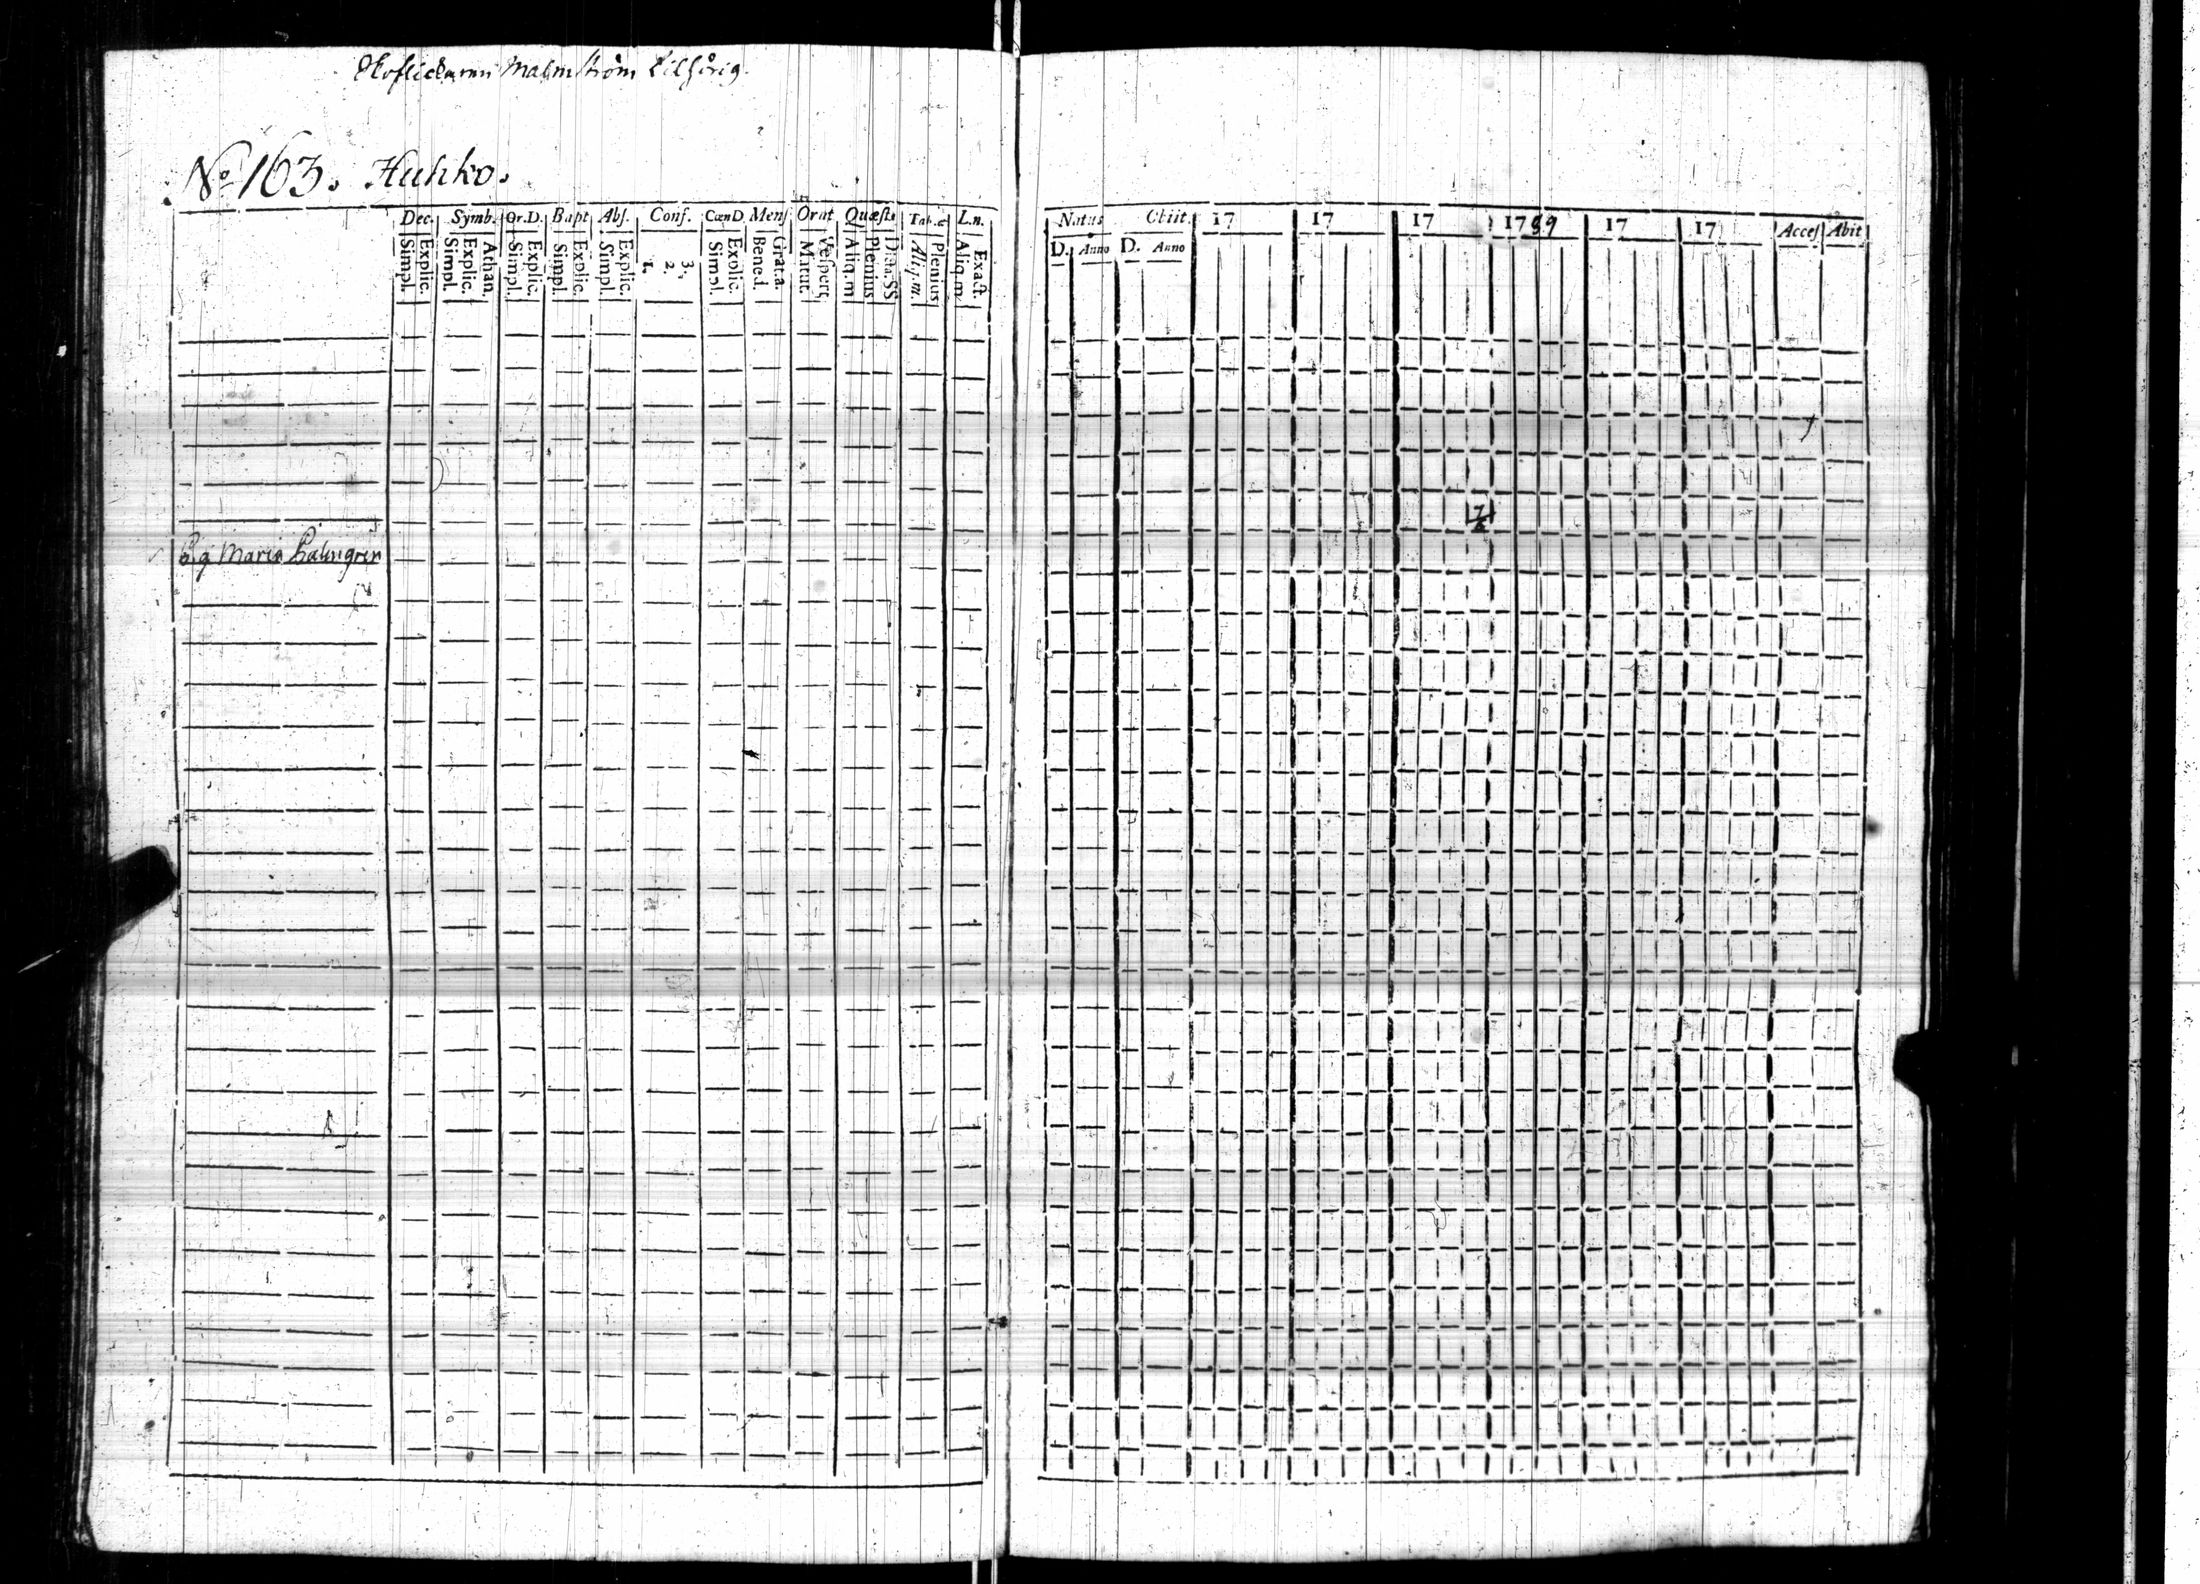 Skoflickaren Malmström tilhörig.
No 163. Huhko.
Dec. Symb. Or.D. Bapt Abs. Conf. CœnD Mens Orat Quæst. Tab. L.n.
Simpl. Explic. Simpl. Explic. Athan. Simpl. Explic. Simpl. Explic. Simpl. Explic. 1. 2. 3. Simpl. Explic. Bened. Grat.a. Matut. Vespert. Aliq.m Plenius Dicta.SS Aliq.m. Plenius Aliq.m Exact.
Maria
Natus Obiit. 17 17 17 1789 17 17 Acces Abit
D. Anno D. Anno